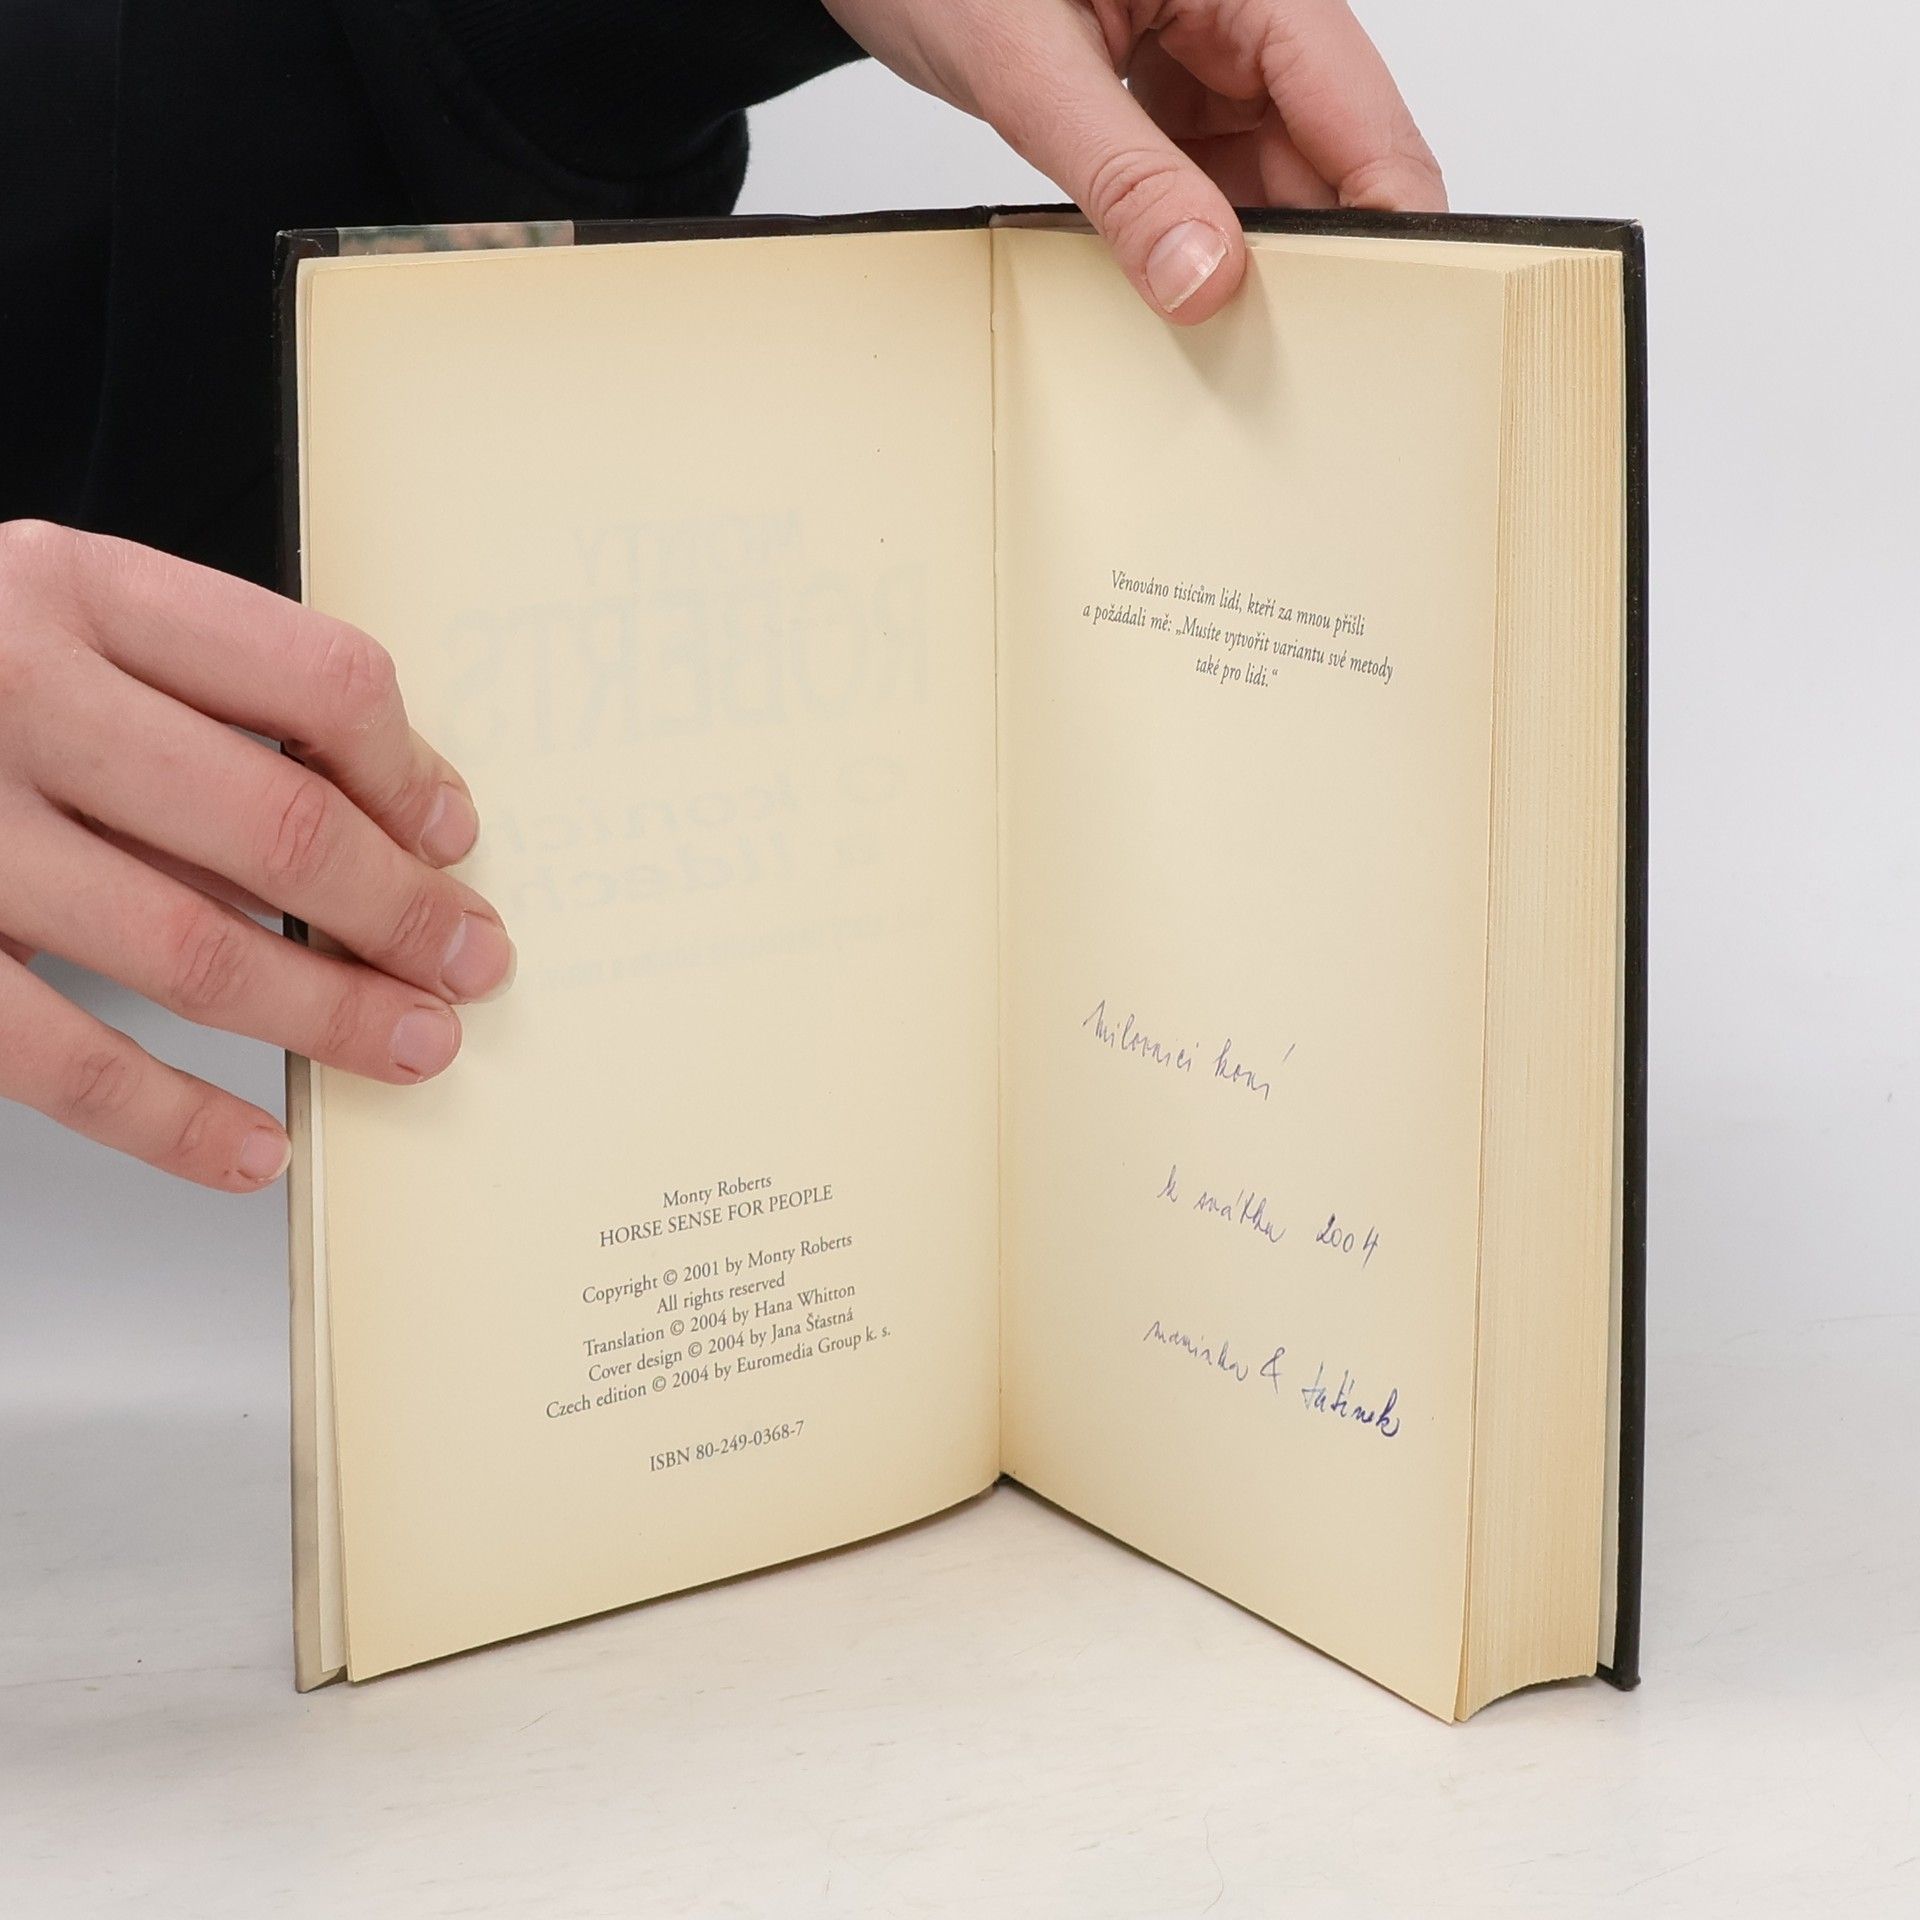 Monty Roberts
HORSE SENSE FOR PEOPLE
Copyright © 2001 by Monty Roberts
All rights reserved
Translation © 2004 by Hana Whitton
Cover design © 2004 by Jana Šťastná
Czech edition © 2004 by Euromedia Group k. s.
ISBN 80-249-0368-7
Věnováno tisícům lidí, kteří za mnou přišli
a požádali mě: „Musíte vytvořit variantu své metody
také pro lidi.“
Milovnici koní
k svátku 2004
maminka & tatínek